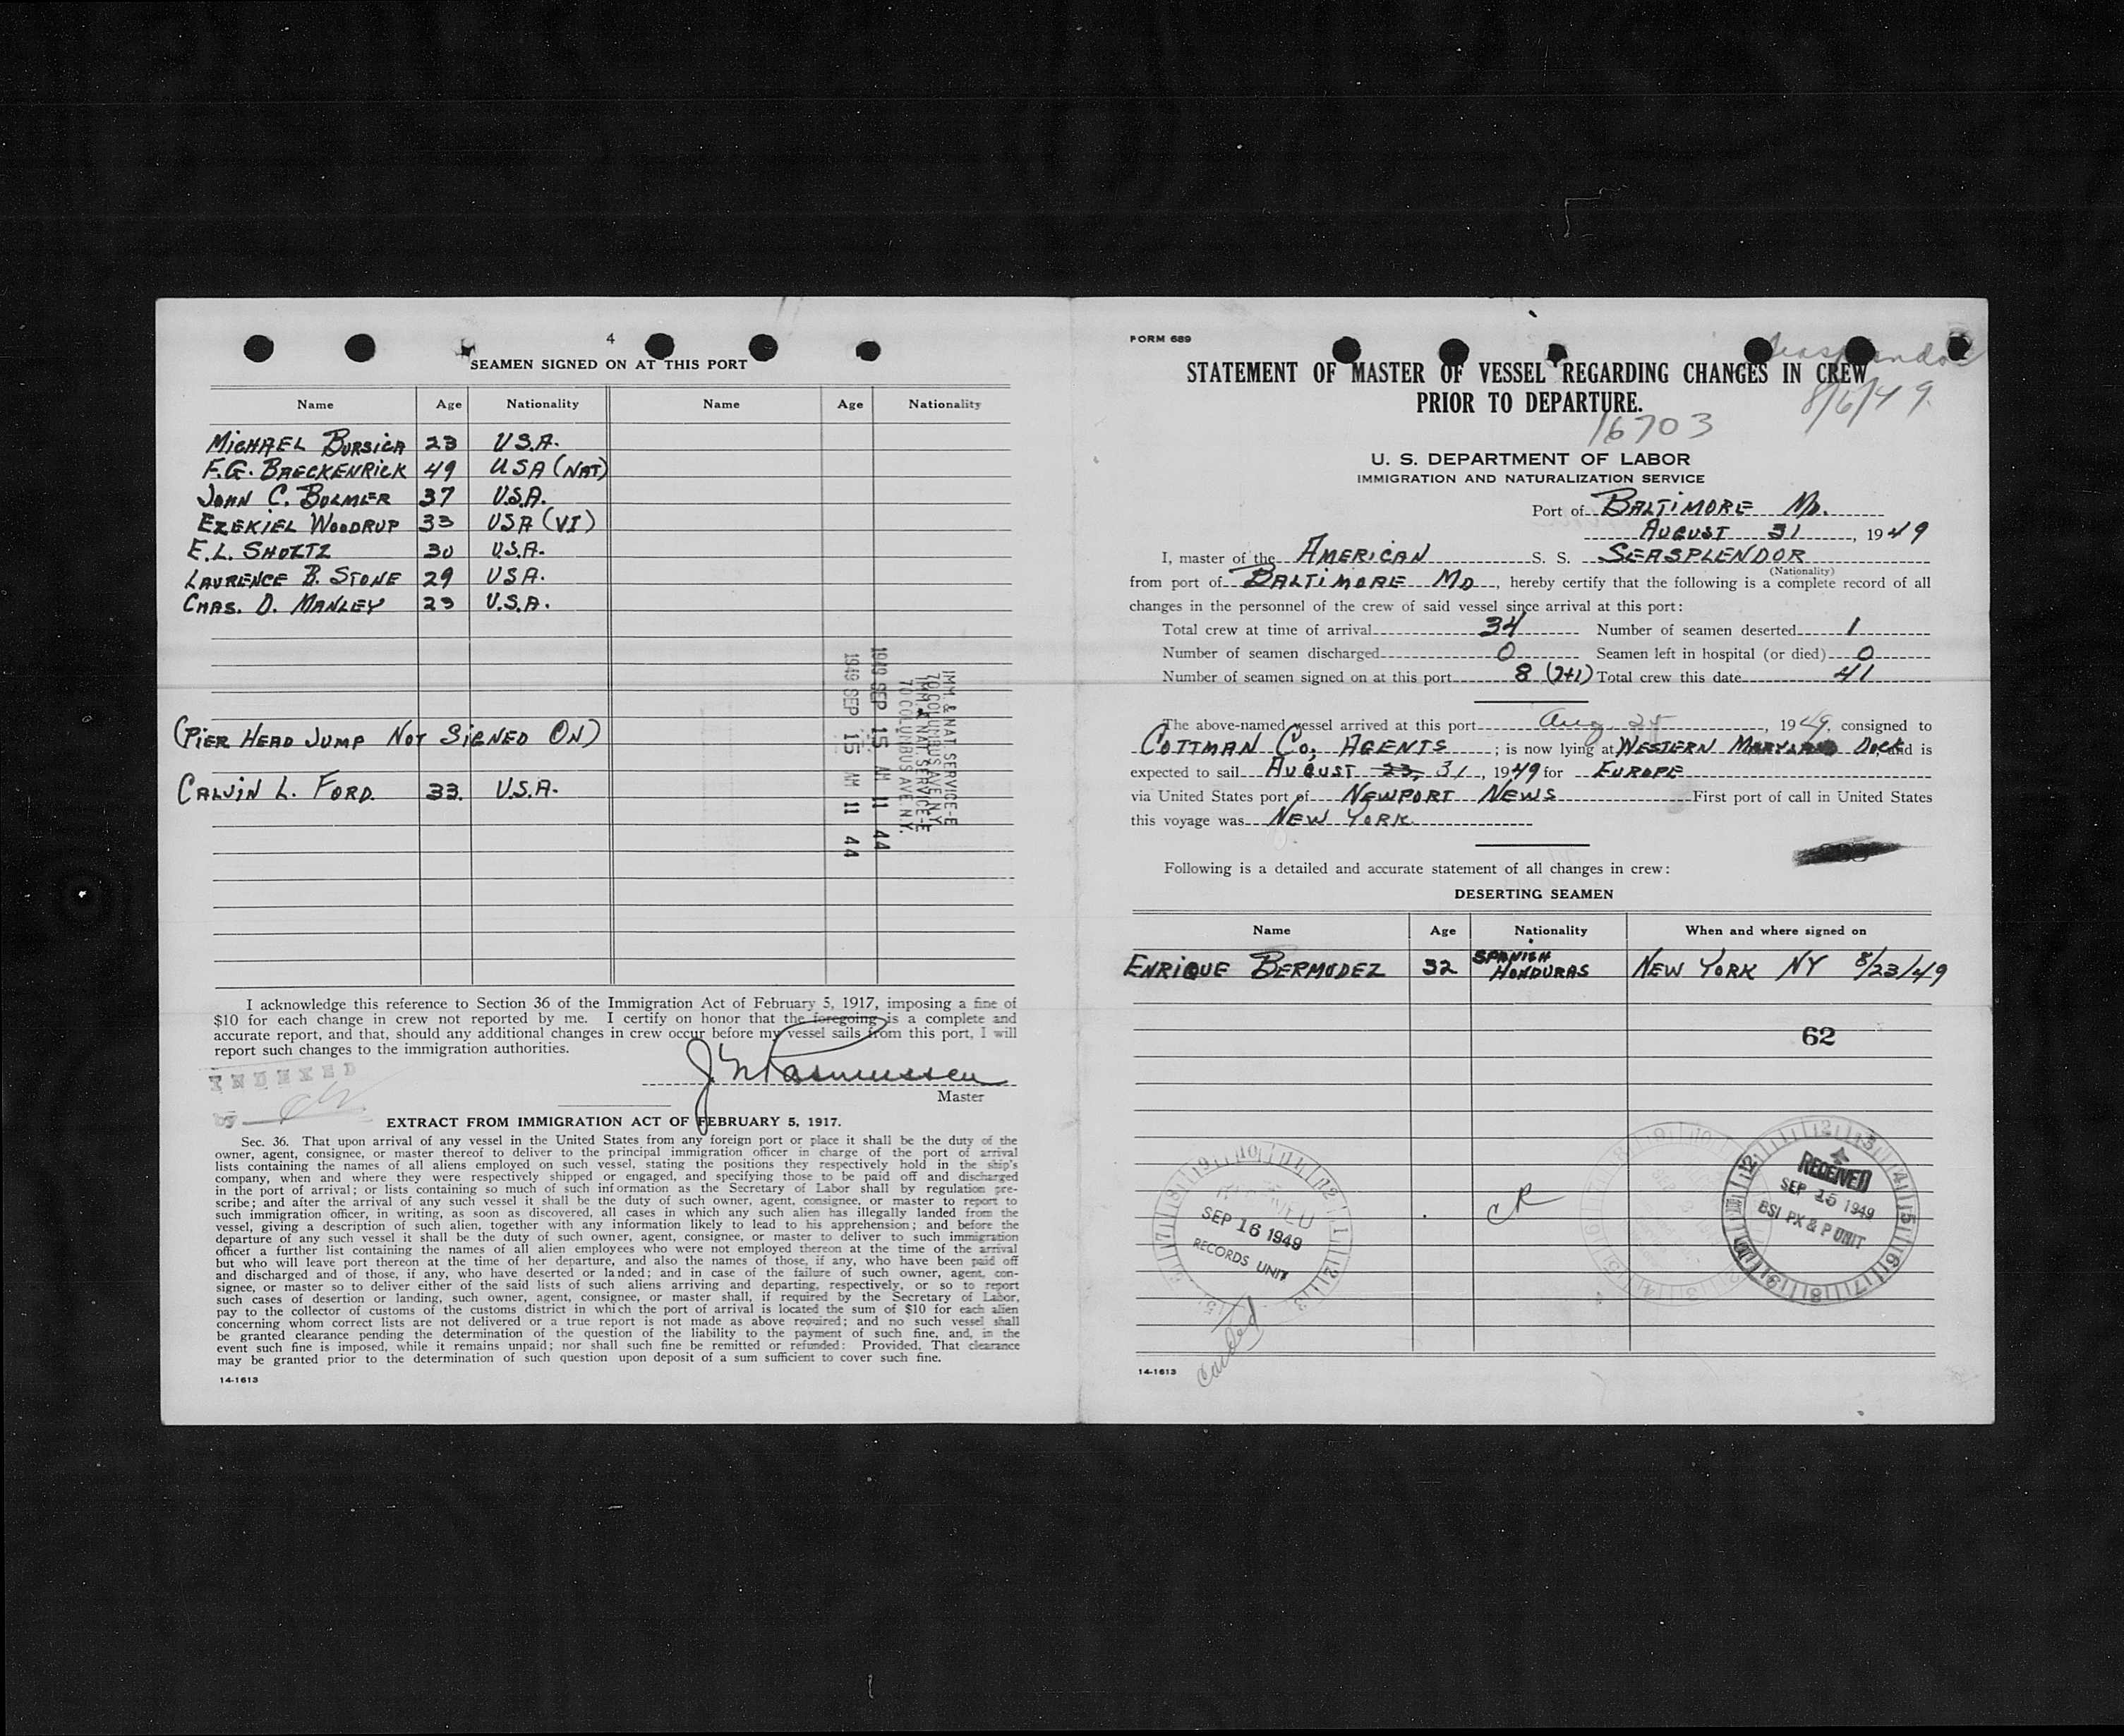 4
SEAMEN SIGNED ON AT THIS PORT
Name Age Nationality Name Age Nationality
MICHAEL BURSICA 23 U.S.A.
F.G. BRECKENRICK 49 USA (NAT)
JOHN C. BULMER 37 U.S.A.
EZEKIEL WOODRUP 33 USA (VI)
E.L. SHOLTZ 30 U.S.A.
LAURENCE B. STONE 29 USA.
CHAS. D. MANLEY 23 U.S.A.
(PIER HEAD JUMP NOT SIGNED ON)
CALVIN L. FORD. 33. U.S.A.
IMM. & NAT. SERVICE-E
70 COLUMBUS AVE N.Y.
IMM. & NAT. SERVICE-E
70 COLUMBUS AVE. N.Y.
1949 SEP 15 AM 11 44
1949 SEP 15 AM 11 44
I acknowledge this reference to Section 36 of the Immigration Act of February 5, 1917, imposing a fine of
$10 for each change in crew not reported by me. I certify on honor that the foregoing is a complete and
accurate report, and that, should any additional changes in crew occur before my vessel sails from this port, I will
report such changes to the immigration authorities.
INDEXED
J Rasmussen
Master
EXTRACT FROM IMMIGRATION ACT OF FEBRUARY 5, 1917.
Sec. 36. That upon arrival of any vessel in the United States from any foreign port or place it shall be the duty of the
owner, agent, consignee, or master thereof to deliver to the principal immigration officer in charge of the port of arrival
lists containing the names of all aliens employed on such vessel, stating the positions they respectively hold in the ship's
company, when and where they were respectively shipped or engaged, and specifying those to be paid off and discharged
in the port of arrival; or lists containing so much of such information as the Secretary of Labor shall by regulation pre-
scribe; and after the arrival of any such vessel it shall be the duty of such owner, agent, consignee, or master to report to
such immigration officer, in writing, as soon as discovered, all cases in which any such alien has illegally landed from the
vessel, giving a description of such alien, together with any information likely to lead to his apprehension; and before the
departure of any such vessel it shall be the duty of such owner, agent, consignee, or master to deliver to such immigration
officer a further list containing the names of all alien employees who were not employed thereon at the time of the arrival
but who will leave port thereon at the time of her departure, and also the names of those, if any, who have been paid off
and discharged and of those, if any, who have deserted or landed; and in case of the failure of such owner, agent, con-
signee, or master so to deliver either of the said lists of such aliens arriving and departing, respectively, or so to report
such cases of desertion or landing, such owner, agent, consignee, or master shall, if required by the Secretary of Labor,
pay to the collector of customs of the customs district in which the port of arrival is located the sum of $10 for each alien
concerning whom correct lists are not delivered or a true report is not made as above required; and no such vessel shall
be granted clearance pending the determination of the question of the liability to the payment of such fine, and, in the
event such fine is imposed, while it remains unpaid; nor shall such fine be remitted or refunded: Provided, That clearance
may be granted prior to the determination of such question upon deposit of a sum sufficient to cover such fine.
14-1613
FORM 689
Seasplendor
8/6/49.
STATEMENT OF MASTER OF VESSEL REGARDING CHANGES IN CREW
PRIOR TO DEPARTURE.
16703
U. S. DEPARTMENT OF LABOR
IMMIGRATION AND NATURALIZATION SERVICE
Port of BALTIMORE MD.
AUGUST 31, 1949
I, master of the AMERICAN S. S. SEASPLENDOR
(Nationality)
from port of BALTIMORE MD, hereby certify that the following is a complete record of all
changes in the personnel of the crew of said vessel since arrival at this port:
Total crew at time of arrival 34 Number of seamen deserted 1
Number of seamen discharged 0 Seamen left in hospital (or died) 0
Number of seamen signed on at this port 8 (7+1) Total crew this date 41
The above-named vessel arrived at this port Aug. 25, 1949, consigned to
COTTMAN CO, AGENTS; is now lying at WESTERN MARYLAND DOCK, and is
expected to sail AUGUST 23, 31, 1949 for EUROPE
via United States port of NEWPORT NEWS First port of call in United States
this voyage was NEW YORK.
Following is a detailed and accurate statement of all changes in crew:
DESERTING SEAMEN
Name Age Nationality When and where signed on
ENRIQUE BERMUDEZ 32 SPANISH HONDURAS NEW YORK NY 8/23/49
62
CR
RECEIVED
SEP 16 1949
RECORDS UNIT
RECEIVED
SEP 15 1949
BSI PX & P UNIT
Carded
14-1613